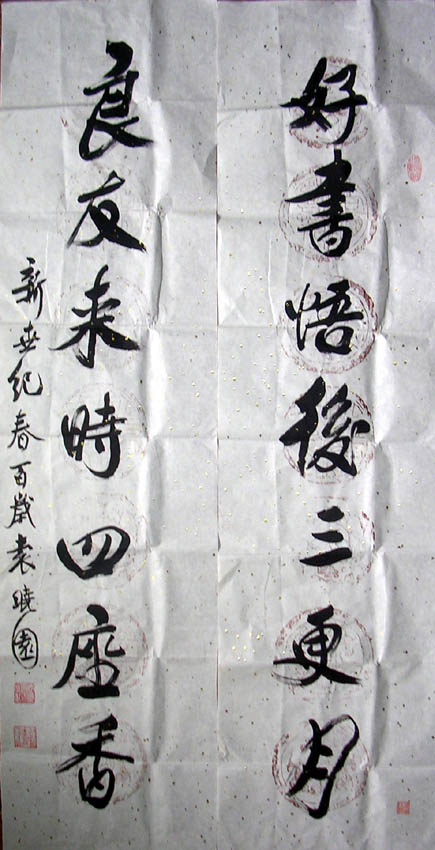 好書悟後三更月
良友来時四座香
新世紀春百歲袁曉園